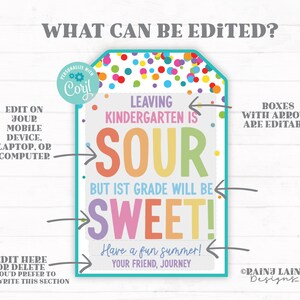 WHAT CAN BE EDITED?
PERSONALIZE WITH
Corjl
EDIT ON
YOUR
MOBILE
DEVICE,
LAPTOP, OR
COMPUTER
BOXES
WITH ARROW
ARE EDITAB
LEAVING
KINDERGARTEN IS
SOUR
BUT 1ST GRADE WILL BE
SWEET!
Have a fun summer!
YOUR FRIEND, JOURNEY
EDIT HERE
OR DELETE
OU'D PREFER TO
WRITE THIS SECTION
©RAINJ LAIN
Designs